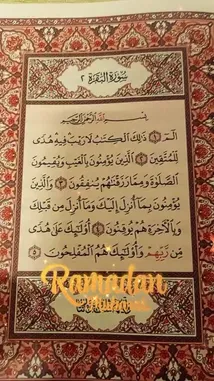 سُورَةُ البَقَرَةِ ٢
بِسْمِ اللَّهِ الرَّحْمَٰنِ الرَّحِيمِ
الٓمٓ ۝١ ذَٰلِكَ الْكِتَٰبُ لَا رَيْبَ فِيهِ هُدًى
لِّلْمُتَّقِينَ ۝٢ الَّذِينَ يُؤْمِنُونَ بِالْغَيْبِ وَيُقِيمُونَ
الصَّلَوٰةَ وَمِمَّا رَزَقْنَٰهُمْ يُنفِقُونَ ۝٣ وَالَّذِينَ
يُؤْمِنُونَ بِمَا أُنزِلَ إِلَيْكَ وَمَا أُنزِلَ مِن قَبْلِكَ
وَبِالْآخِرَةِ هُمْ يُوقِنُونَ ۝٤ أُولَٰئِكَ عَلَىٰ هُدًى
مِّن رَّبِّهِمْ وَأُولَٰئِكَ هُمُ الْمُفْلِحُونَ ۝٥
Ramadan